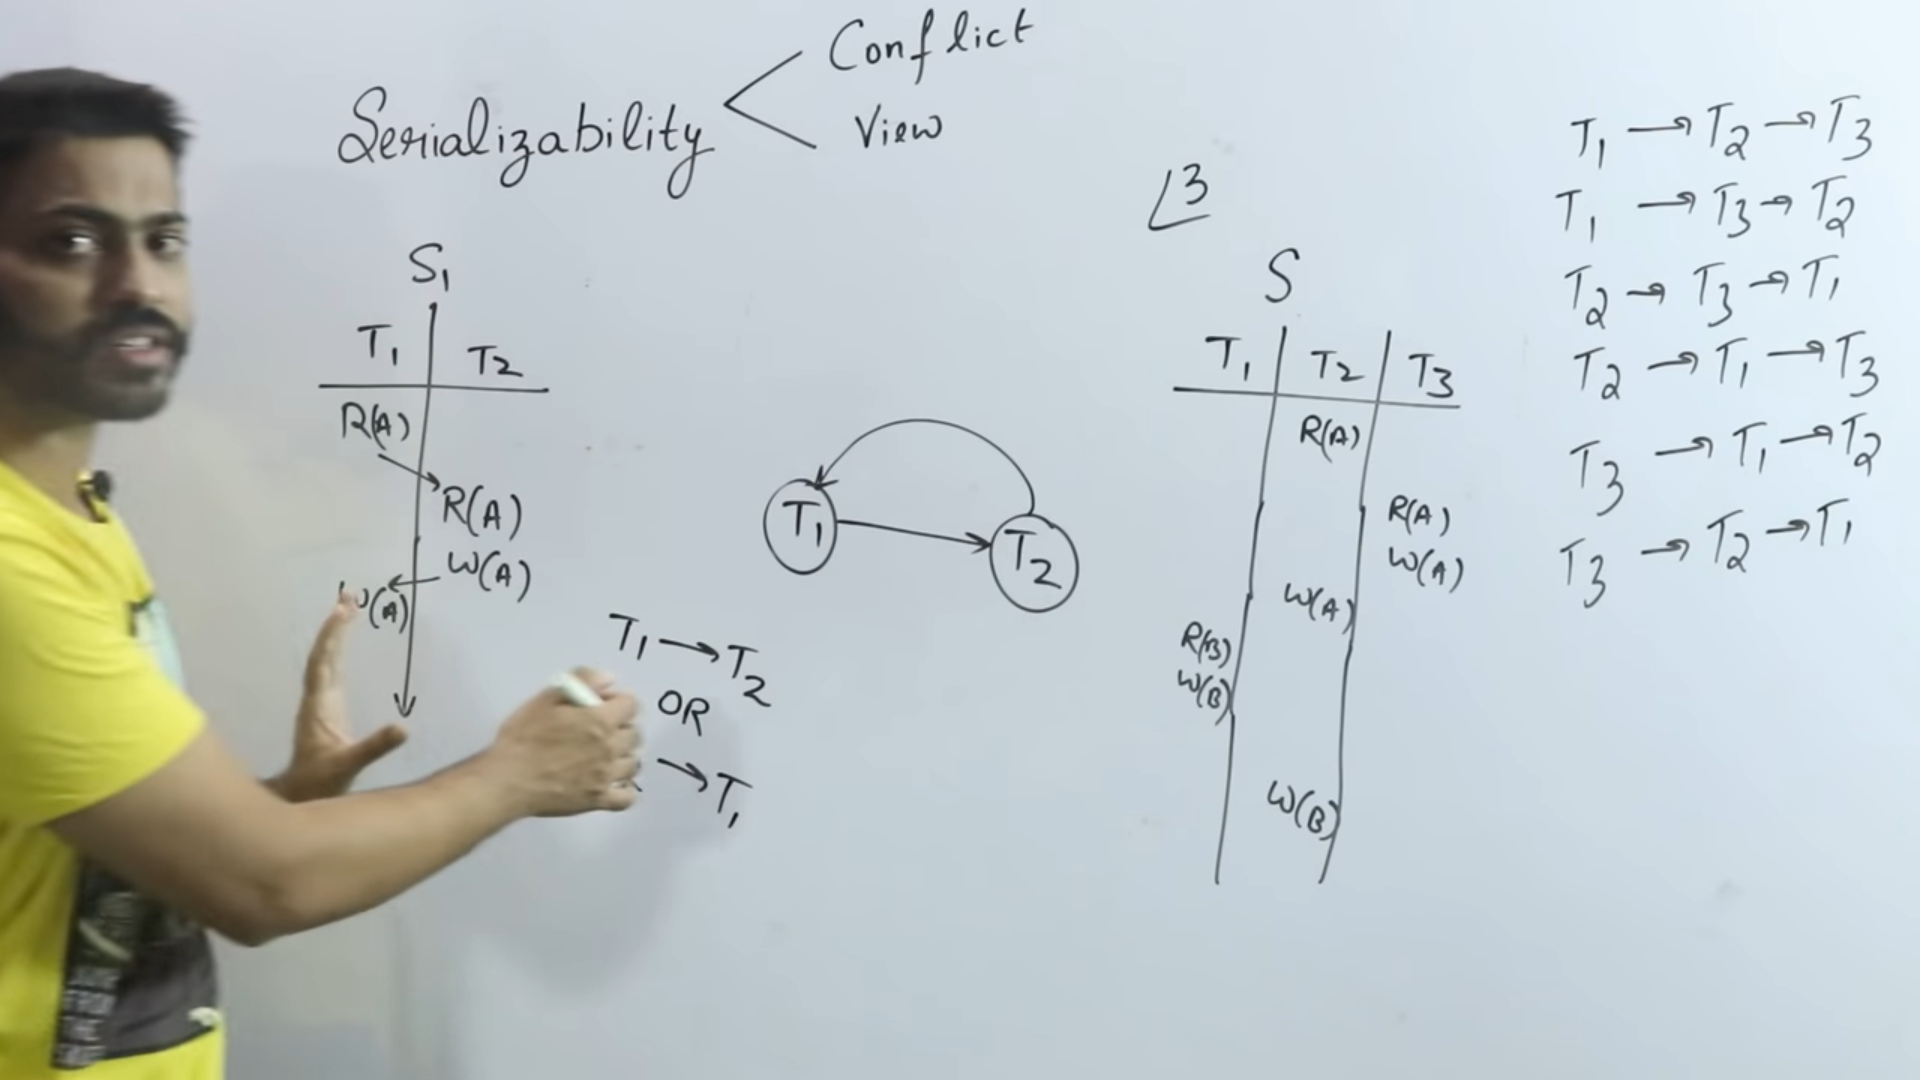 Serializability
Conflict
View
S1
T1 T2
R(A)
R(A)
W(A)
W(A)
T1 T2
T1 → T2
OR
→ T1
3
S
T1 T2 T3
R(A)
R(A)
W(A)
W(A)
R(B)
W(B)
W(B)
T1 → T2 → T3
T1 → T3 → T2
T2 → T3 → T1
T2 → T1 → T3
T3 → T1 → T2
T3 → T2 → T1
FROM
THE